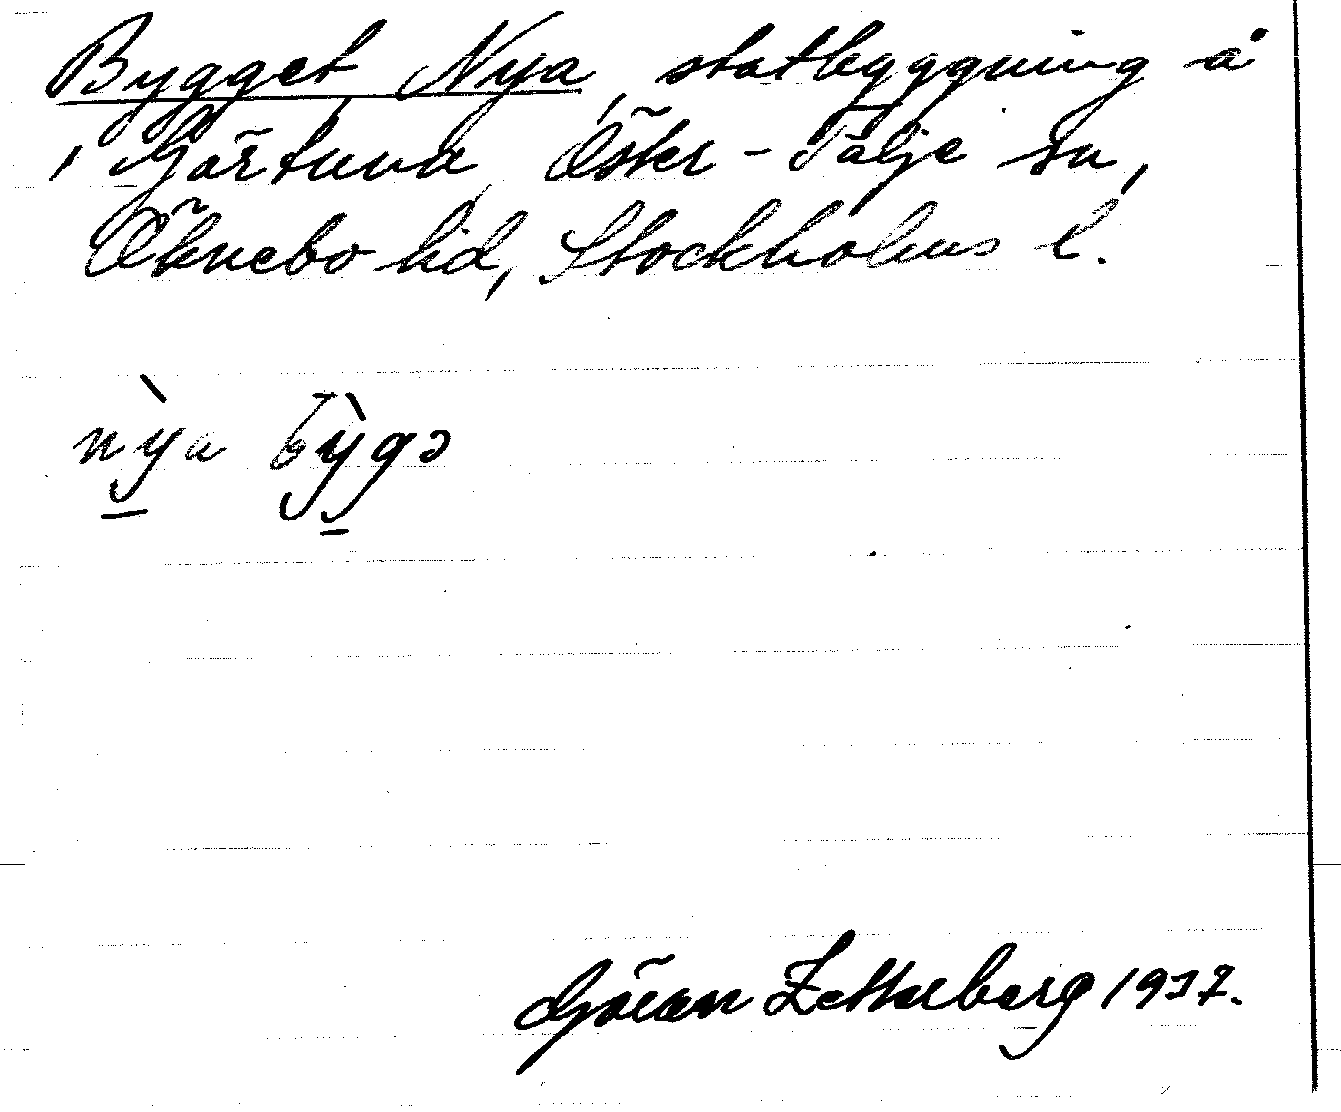 Bygget Nya, statbyggning å
, Gärtuna, Öster-Tälje sn,
Öknebo hd, Stockholms l.
nỳa bỳgə
Göran Zetterberg 1937.